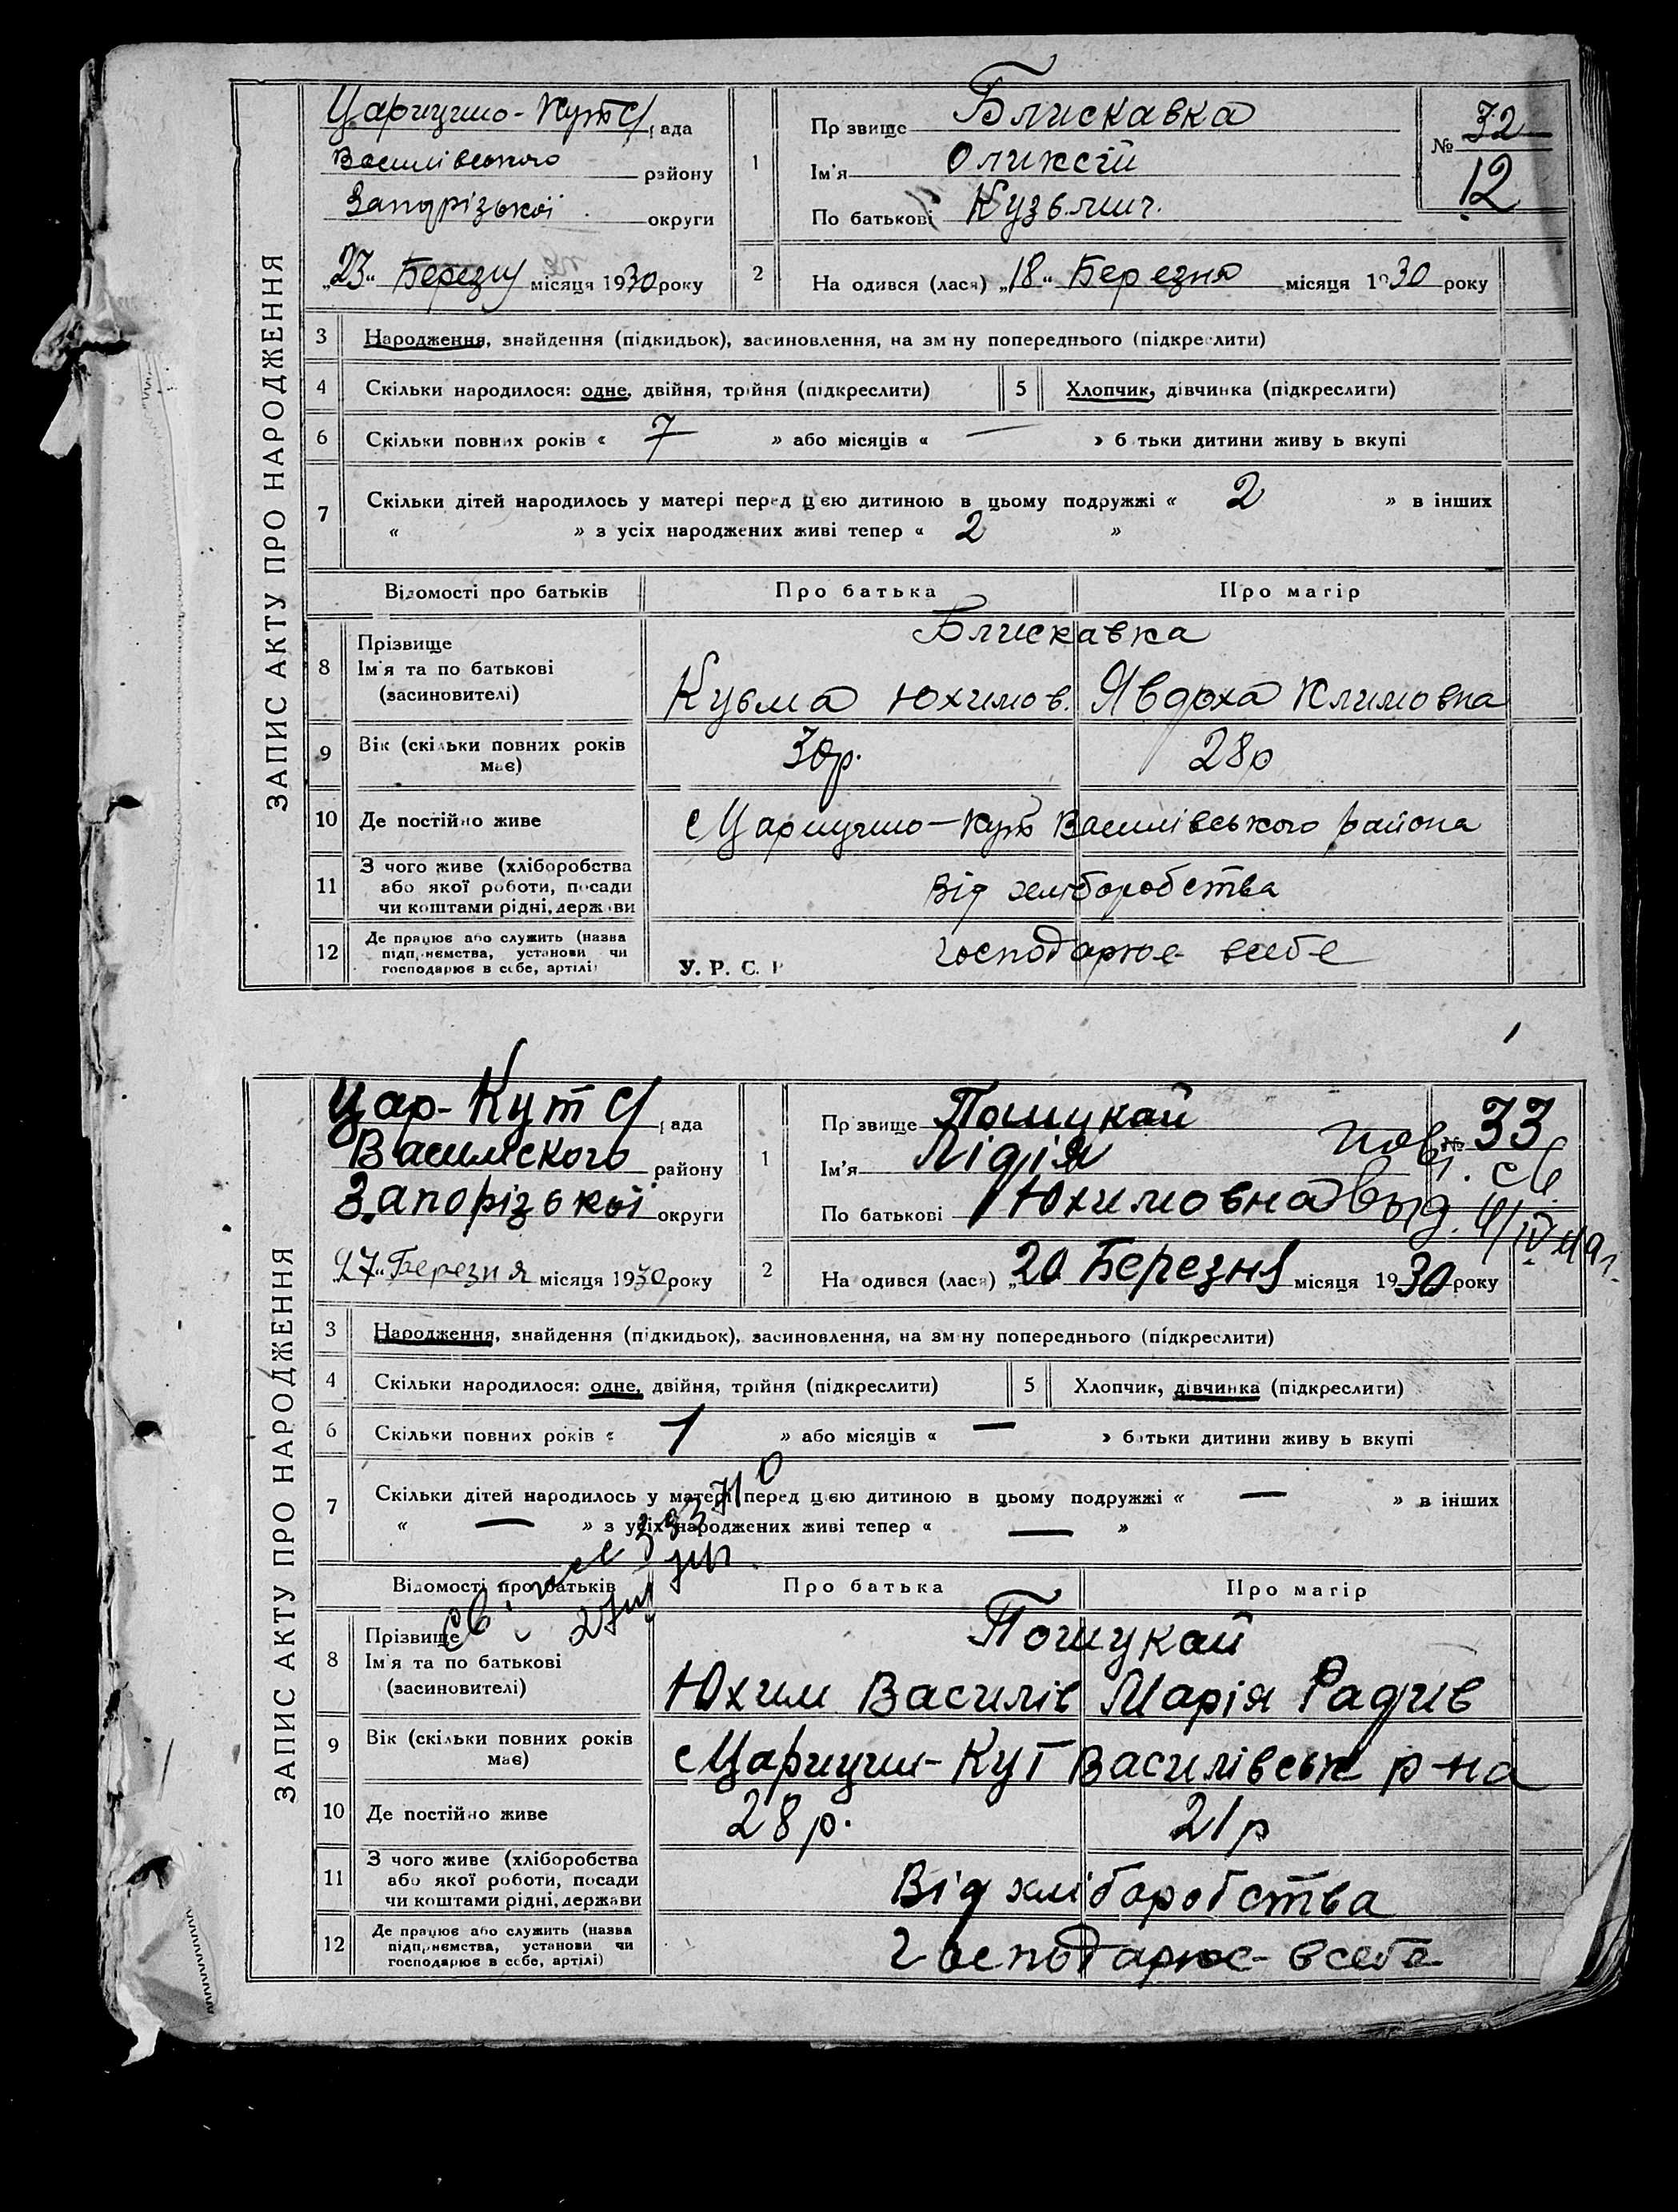 ЗАПИС АКТУ ПРО НАРОДЖЕННЯ
Царицино-Кут С/рада
Василівського району
Запорізької округи
„23“ Березня місяця 1930 року
1 Прізвище Блискавка
Ім'я Оликсій
По батькові Кузьмич.
№ 32
12
2 На одився (лася) „18“ Березня місяця 1930 року
3 Народження, знайдення (підкидьок), засиновлення, на зм ну попереднього (підкреслити)
4 Скільки народилося: одне, двійня, трійня (підкреслити) 5 Хлопчик, дівчинка (підкреслити)
6 Скільки повних років « 7 » або місяців « — » батьки дитини живу ь вкупі
7 Скільки дітей народилось у матері перед цією дитиною в цьому подружжі « 2 » в інших
« » з усіх народжених живі тепер « 2 »
Відомості про батьків Про батька Про матір
8 Прізвище
Ім'я та по батькові
(засиновителі)
Блискавка
Кузма Юхимов. Явдоха Климовна
9 Вік (скільки повних років має) 30р. 28р
10 Де постійно живе Царицино-Кут Василівського района
11 З чого живе (хліборобства
або якої роботи, посади
чи коштами рідні, держави
Від хліборобства
12 Де працює або служить (назва
підприємства, установи чи
господарює в себе, артілі)
У. Р. С. Р
господарює всебе
ЗАПИС АКТУ ПРО НАРОДЖЕННЯ
Цар-Кут С/рада
Василівского району
Запорізької округи
„27“ Березня місяця 1930 року
1 Прізвище Пошукай
Ім'я Лідія
По батькові Юхимовна
№ 33
2 На одився (лася) „20 Березня місяця 1930 року
3 Народження, знайдення (підкидьок), засиновлення, на зм ну попереднього (підкреслити)
4 Скільки народилося: одне, двійня, трійня (підкреслити) 5 Хлопчик, дівчинка (підкреслити)
6 Скільки повних років « 1 » або місяців « — » батьки дитини живу ь вкупі
7 Скільки дітей народилось у матері перед цією дитиною в цьому подружжі « — » в інших
« — » з усіх народжених живі тепер « — »
Відомості про батьків Про батька Про матір
8 Прізвище
Ім'я та по батькові
(засиновителі)
Пошукай
Юхим Василів Марія Радив
9 Вік (скільки повних років має) Царицин-Кут Василівськ р-на
10 Де постійно живе 28р. 21р
11 З чого живе (хліборобства
або якої роботи, посади
чи коштами рідні, держави
Від хліборобства
12 Де працює або служить (назва
підприємства, установи чи
господарює в себе, артілі)
Господарює всебе